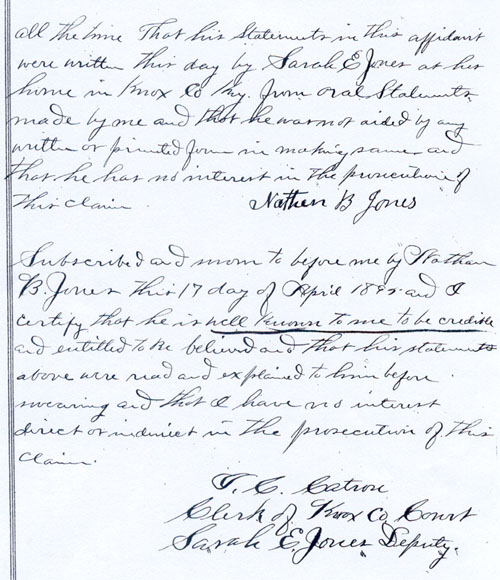 all the time That his Statements in this affidavit
were written this day by Sarah E Jones at her
home in Knox Co Ky. from oral Statements
made by me and that he was not aided by any
written or printed form in making same and
that he has no interest in the prosecution of
this claim Nathen B Jones
Subscribed and sworn to before me by Nathan
B. Jones this 17 day of April and I
certify that he is well known to me to be credible
and entitled to be believed and that his statements
above were read and explained to him before
swearing and that I have no interest
direct or indirect in the prosecution of this
claim.
T. C. Catron
Clerk of Knox Co Court
Sarah E. Jones Deputy.